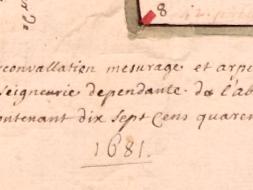 8
rconvallation mesurage et arpe
Seigneurie dependante de l'ab
ontenant dix sept Cens quaren
1681.